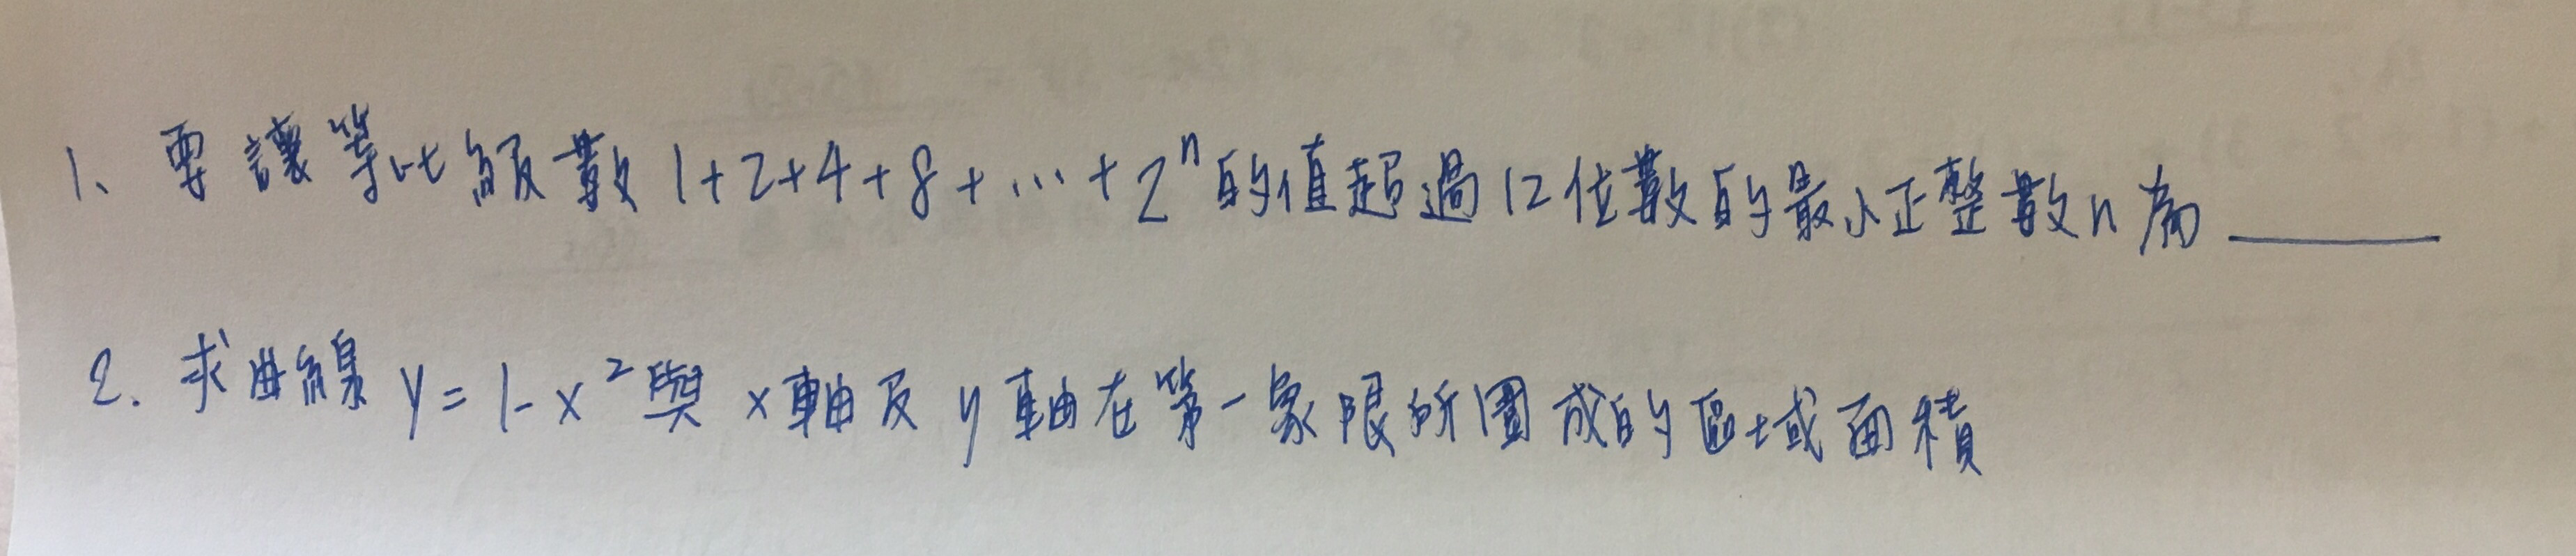 1、要讓等比級數 1+2+4+8+...+2ⁿ的值超過12位數的最小正整數n為______
2. 求曲線 y=1-x²與 x軸及 y軸在第一象限所圍成的區域面積